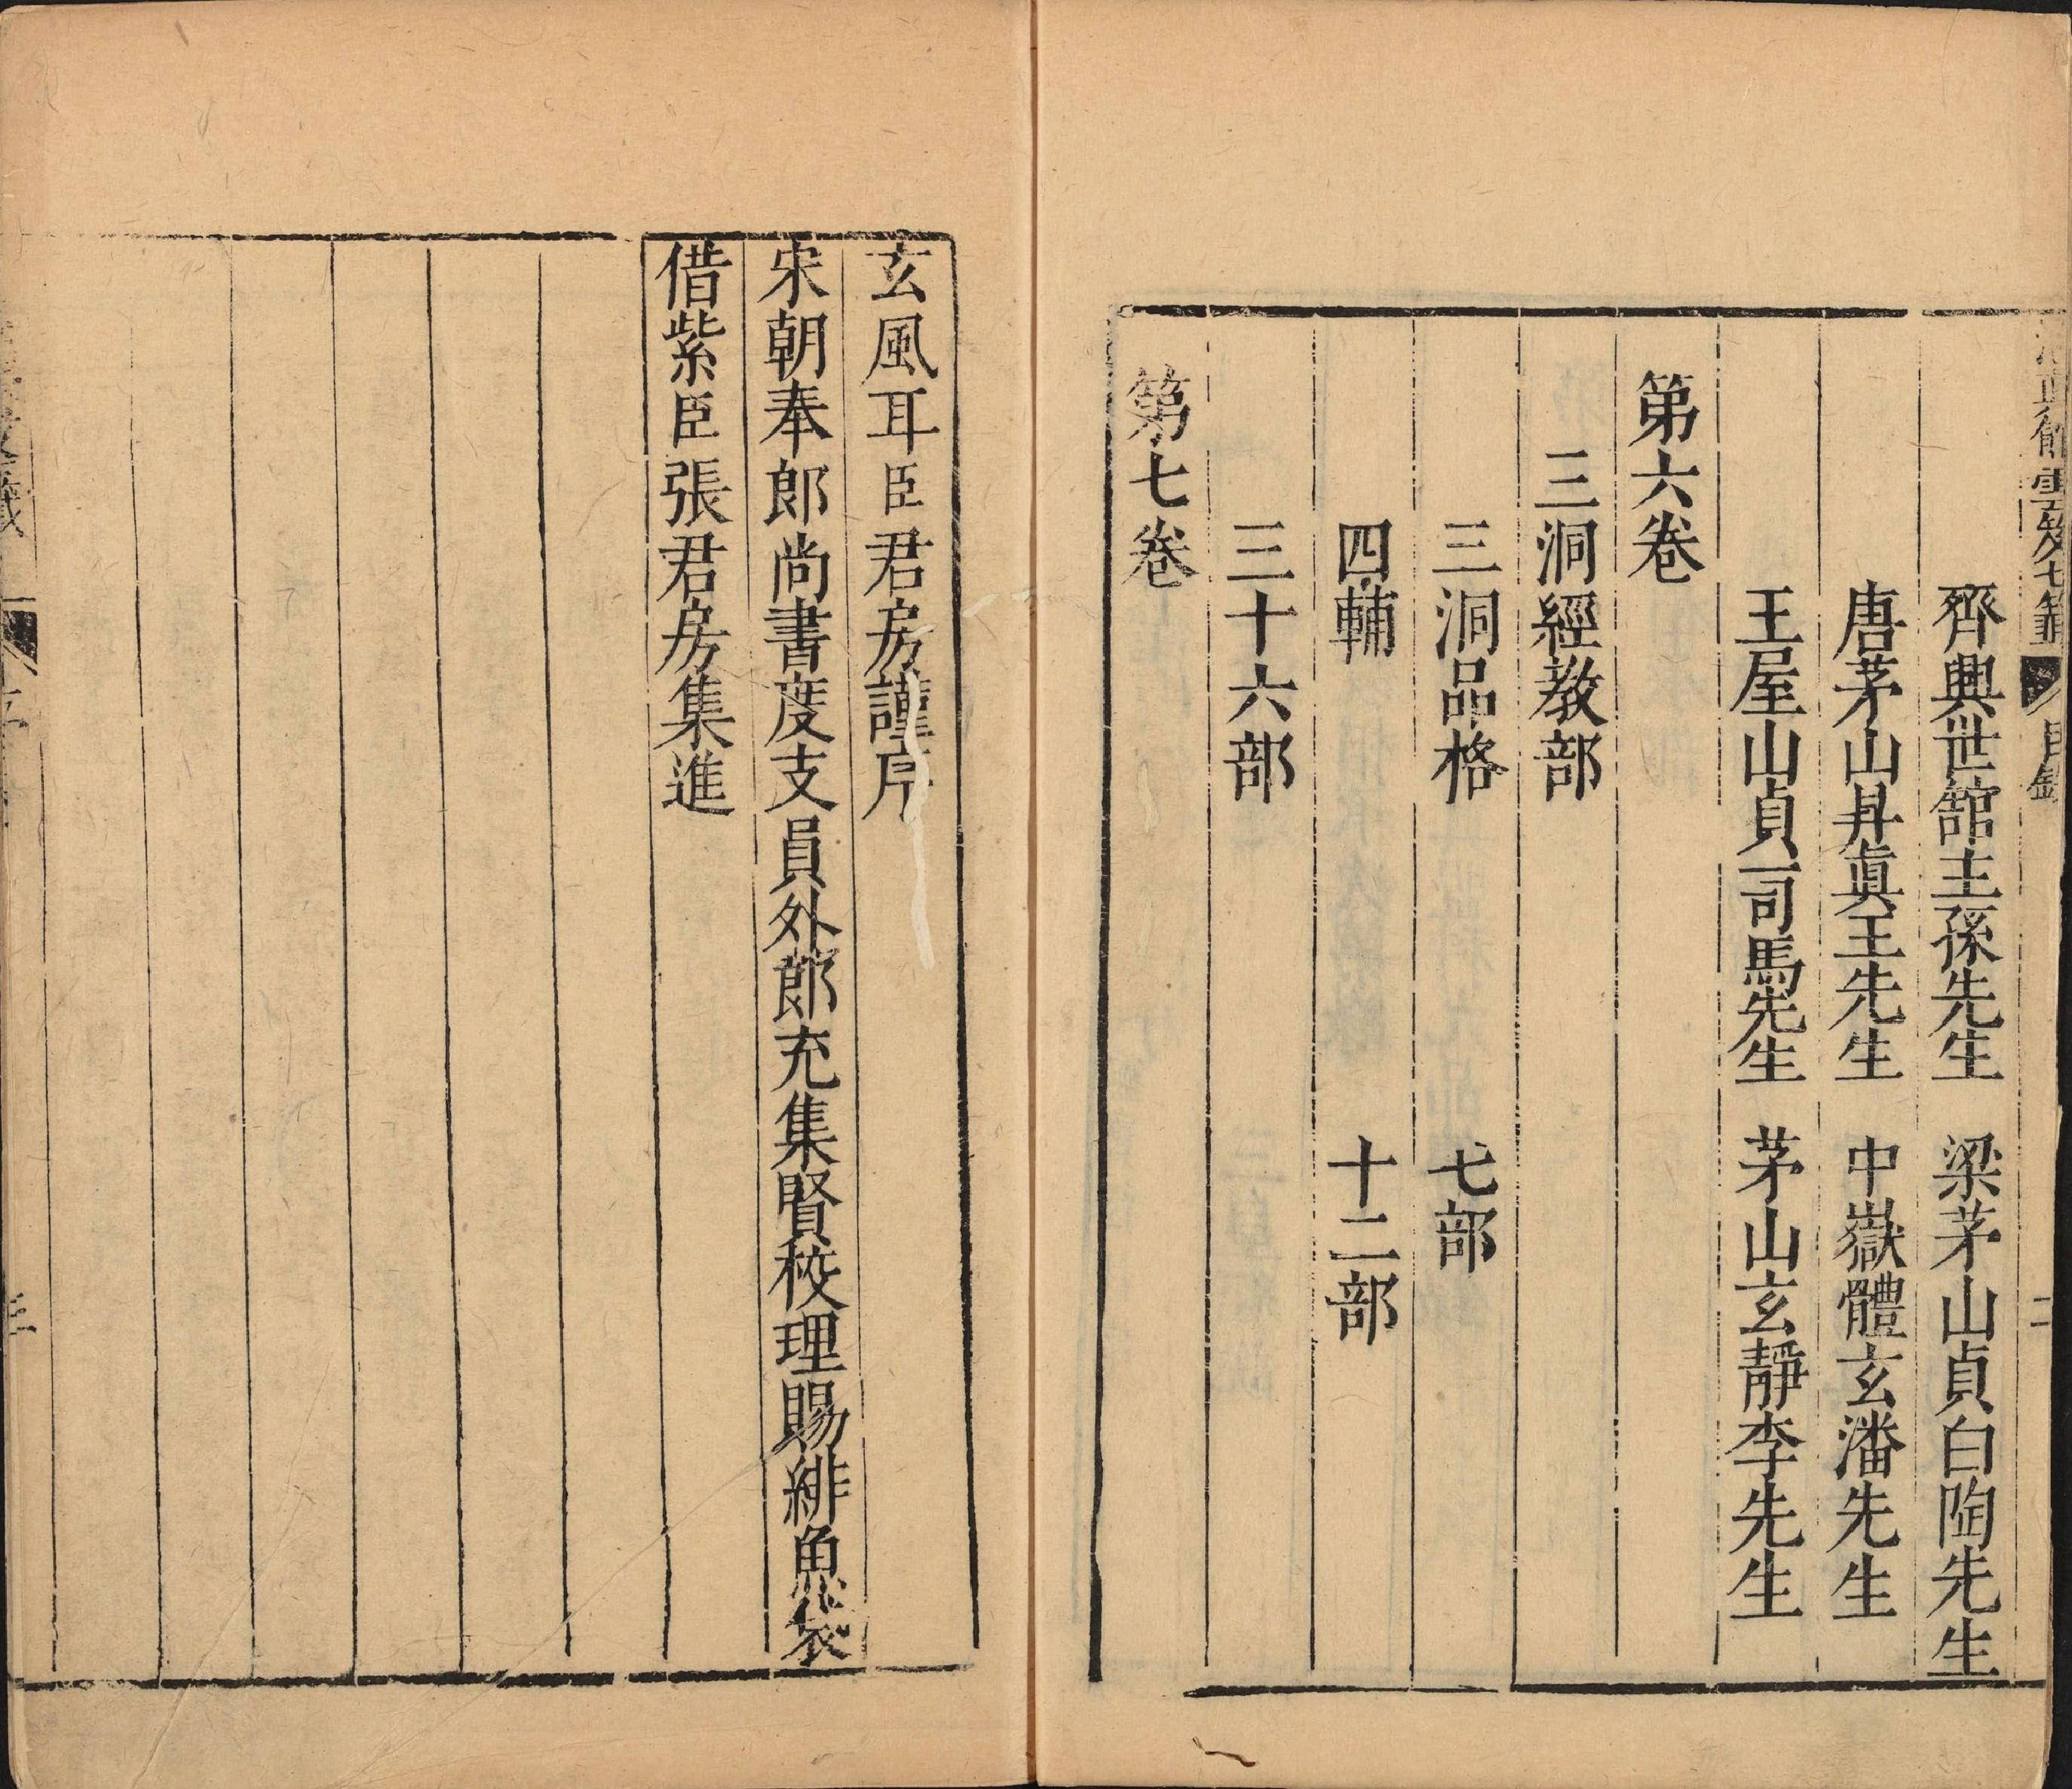 清真館雲笈七籤 目錄 二
齊興世館主孫先生 梁茅山貞白陶先生
唐茅山昇眞王先生 中嶽體玄潘先生
王屋山貞一司馬先生 茅山玄靜李先生
第六卷
三洞經教部
三洞品格 七部
四輔 十二部
三十六部
第七卷
玄風耳臣君房謹序
宋朝奉郎尚書度支員外郎充集賢校理賜緋魚袋
借紫臣張君房集進
三